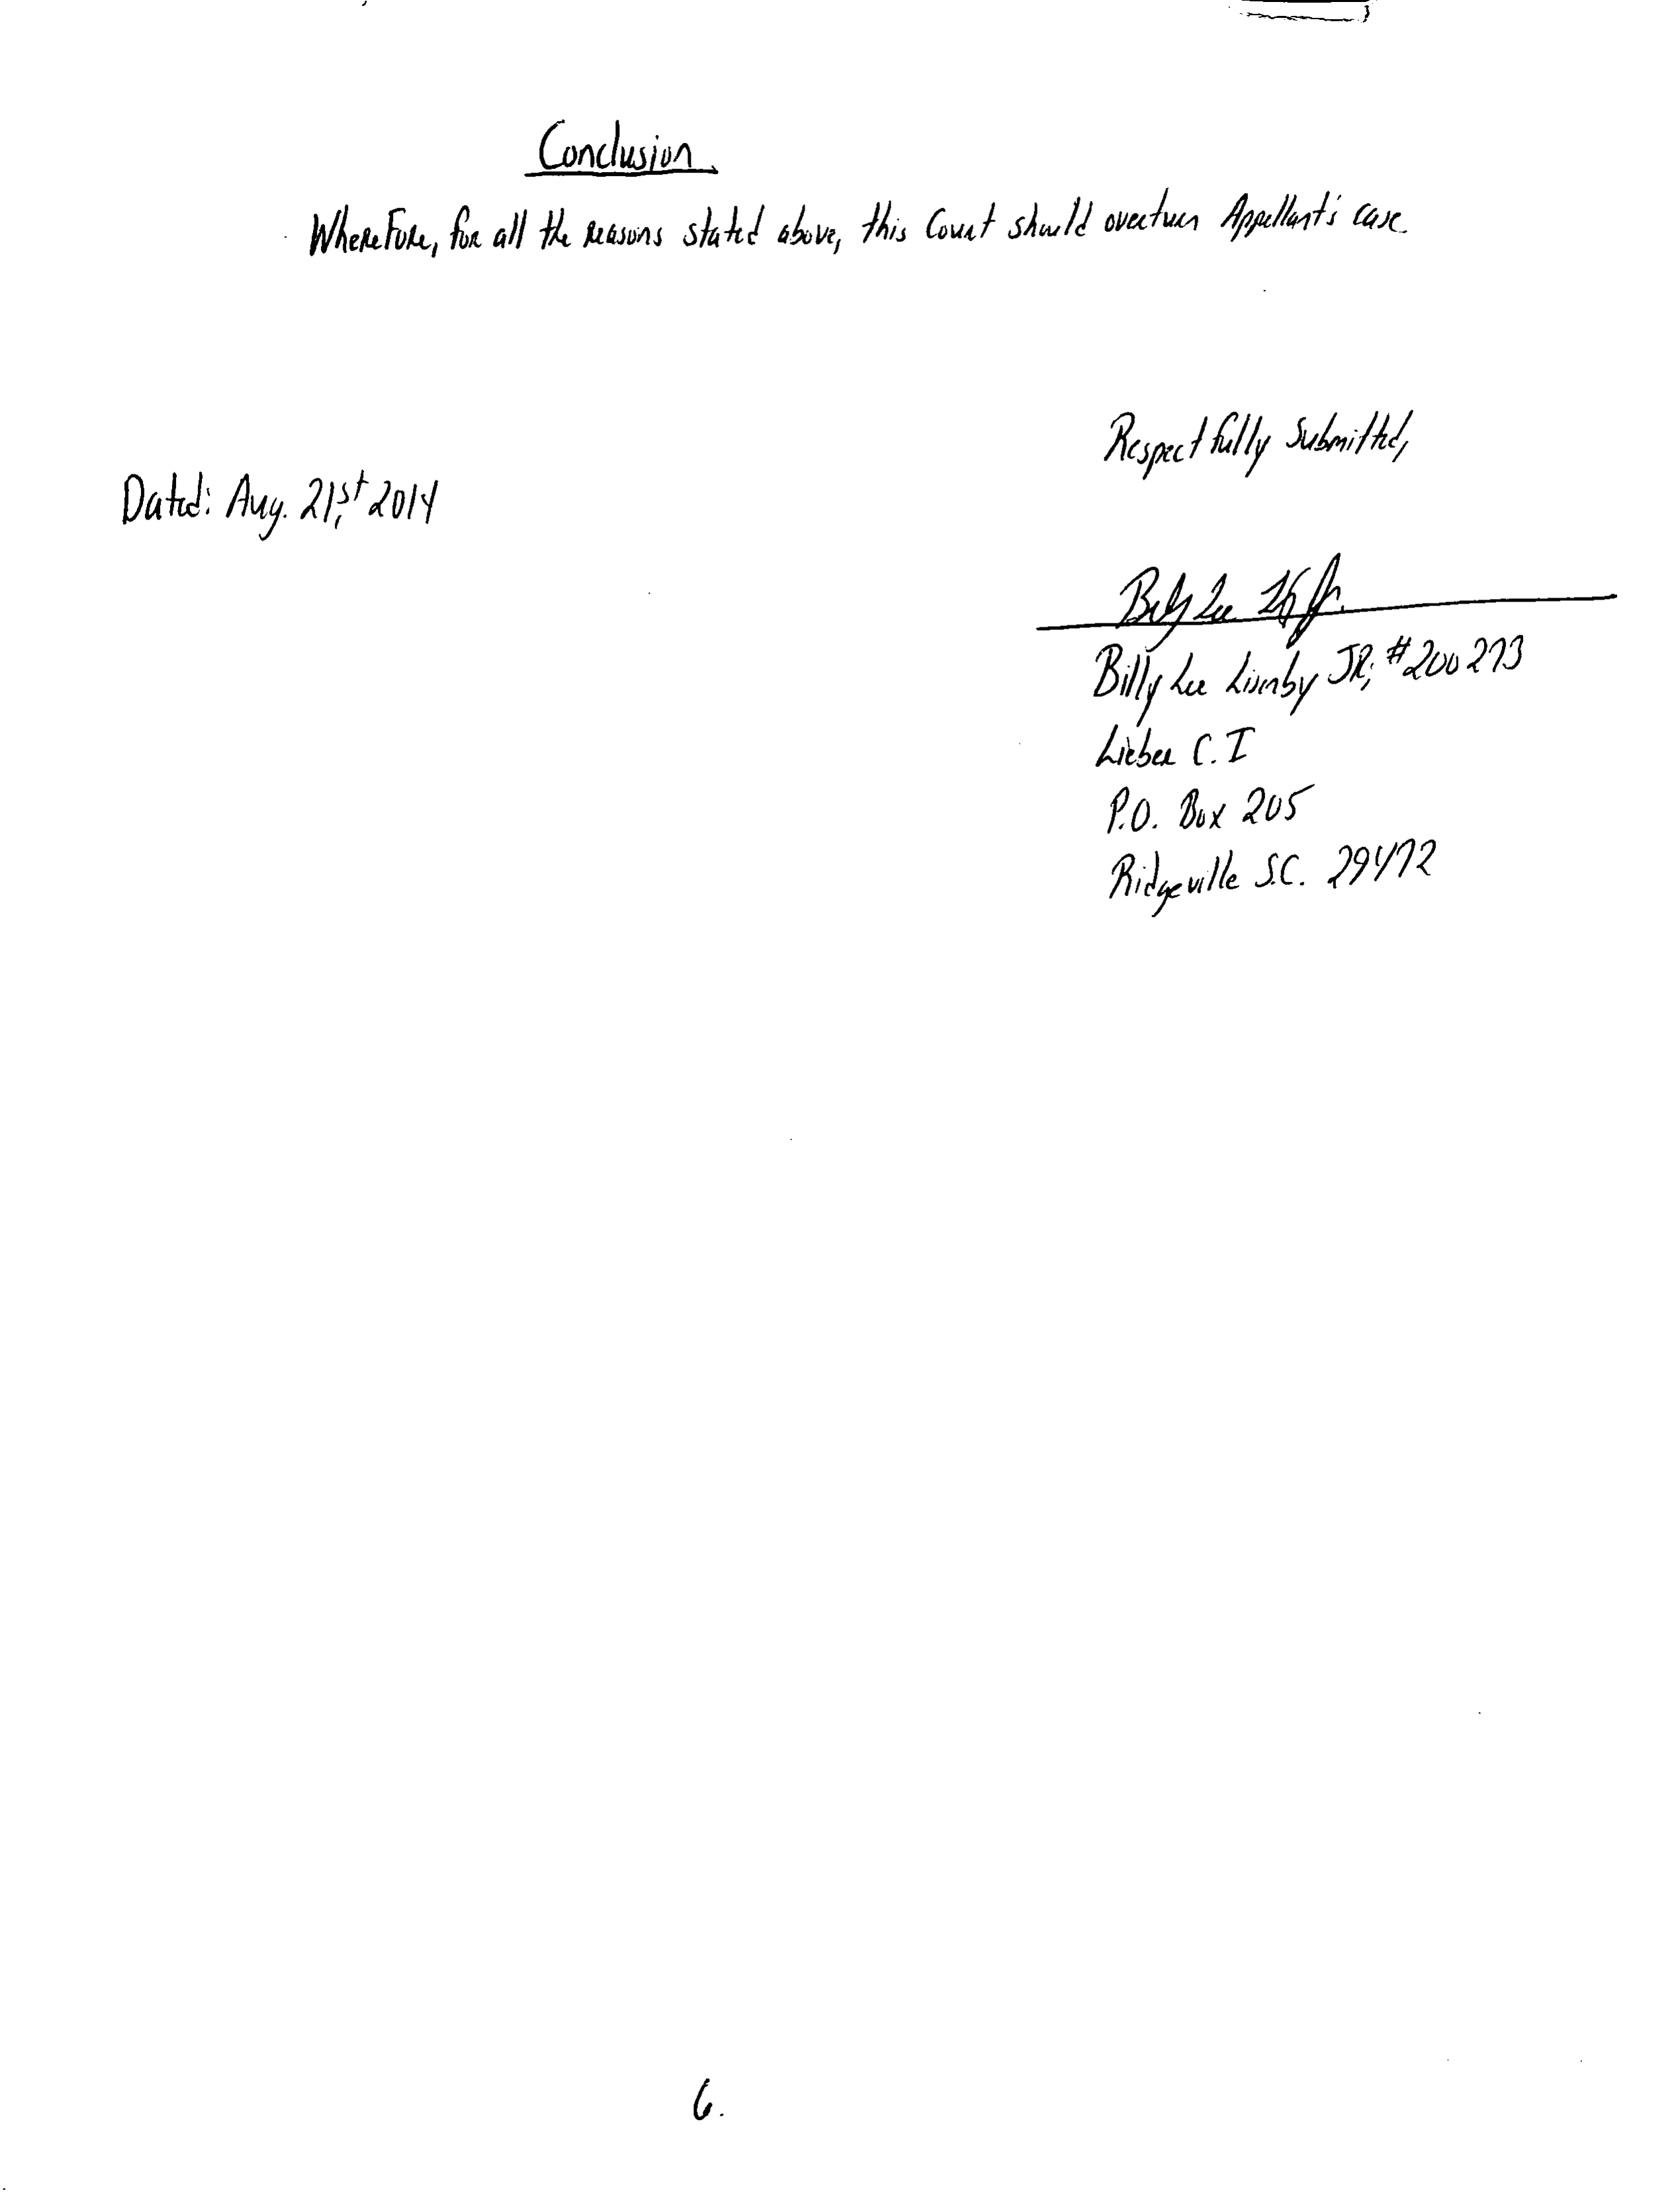 Conclusion
Wherefore, for all the reasons stated above, this Court should overturn Appellant's case.
Respectfully Submitted,
Dated: Aug. 21st, 2014
Billy Lee
Billy Lee Lisenby JR, #200273
Lieber C.I
P.O. Box 205
Ridgeville S.C. 29472
6.